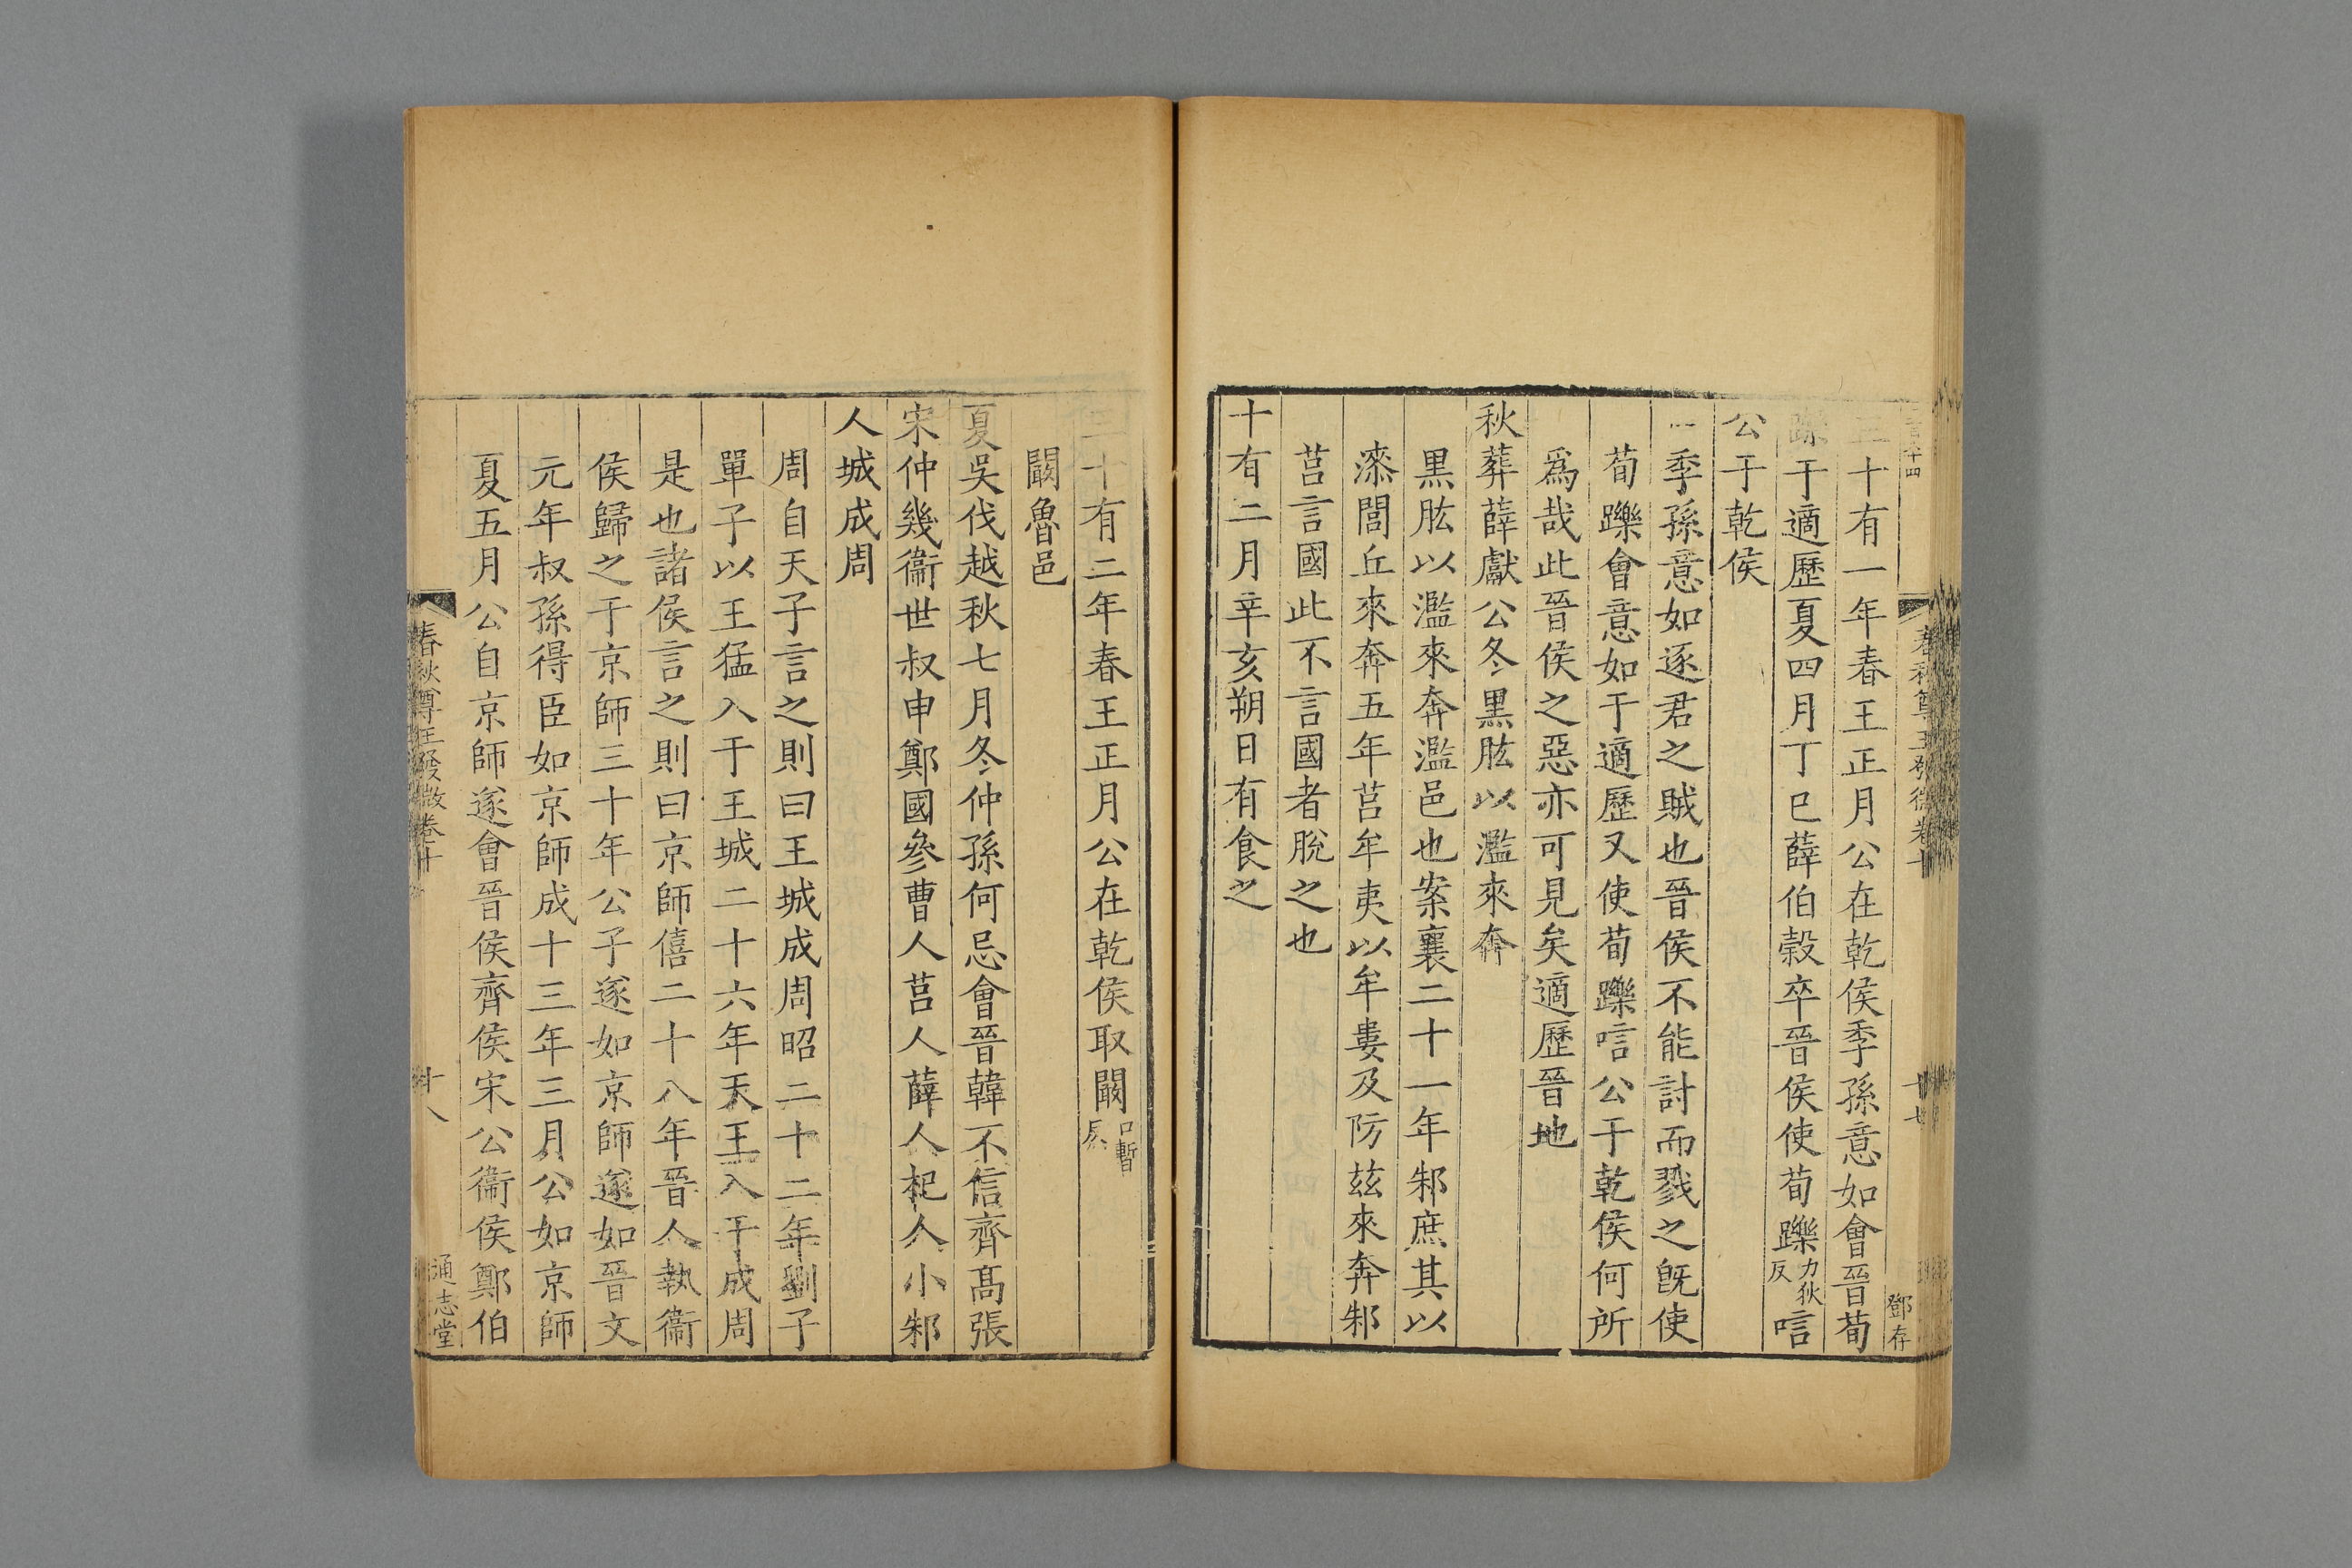 春秋尊王發微卷十
十七
鄧存
三十有一年春王正月公在乾侯季孫意如會晉荀
躒于適歷夏四月丁巳薛伯穀卒晉侯使荀躒力狄反唁
公于乾侯
季孫意如逐君之賊也晉侯不能討而戮之旣使
荀躒會意如于適歷又使荀躒唁公于乾侯何所
爲哉此晉侯之惡亦可見矣適歷晉地
秋葬薛獻公冬黑肱以濫來奔
黑肱以濫來奔濫邑也案襄二十一年邾庶其以
漆閭丘來奔五年莒牟夷以牟婁及防玆來奔邾
莒言國此不言國者脫之也
十有二月辛亥朔日有食之
三十有二年春王正月公在乾侯取闞口暫反
闞魯邑
夏吳伐越秋七月冬仲孫何忌會晉韓不信齊髙張
宋仲幾衞世叔申鄭國參曹人莒人薛人杞人小邾
人城成周
周自天子言之則曰王城成周昭二十二年劉子
單子以王猛入于王城二十六年天王入于成周
是也諸侯言之則曰京師僖二十八年晉人執衞
侯歸之于京師三十年公子遂如京師遂如晉文
元年叔孫得臣如京師成十三年三月公如京師
夏五月公自京師遂會晉侯齊侯宋公衞侯鄭伯
春秋尊王發微卷十
十八
通志堂